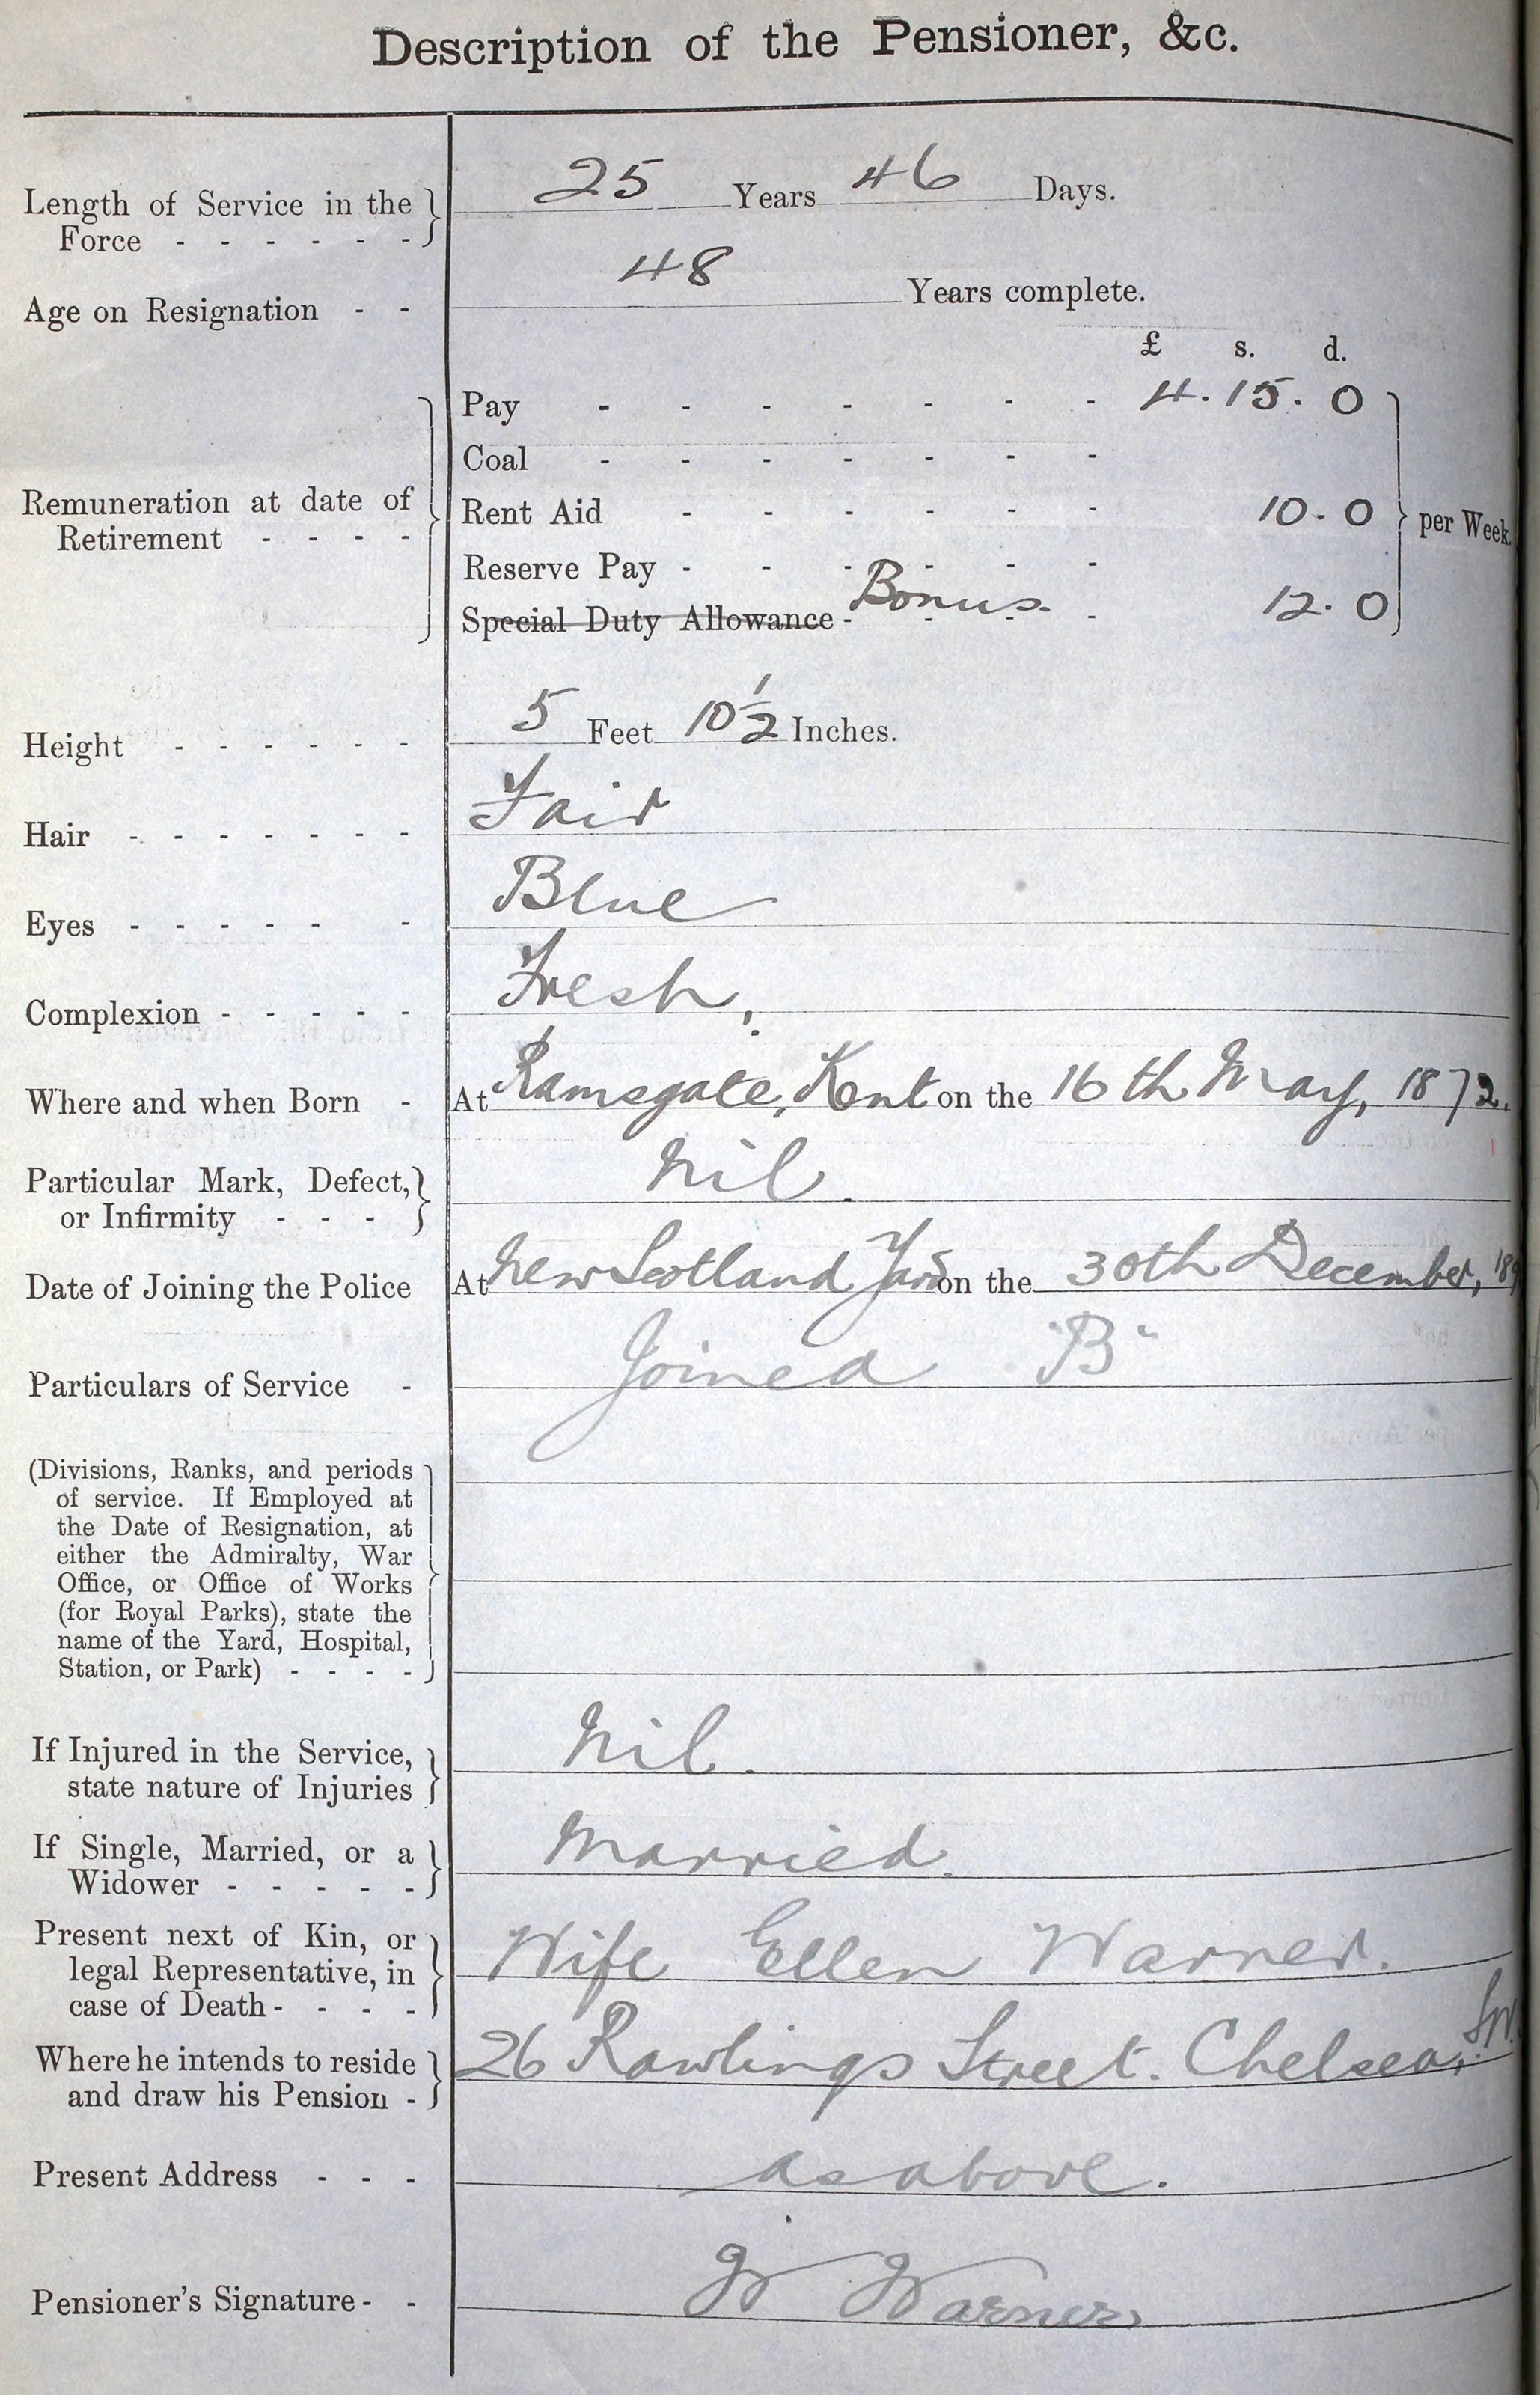 Description of the Pensioner, &c.
Length of Service in the
Force - - - - - -
25 Years 46 Days.
Age on Resignation - -
48 Years complete.
£ s. d.
Remuneration at date of
Retirement - - - -
Pay - - - - - - - 4. 15. 0
Coal - - - - - - -
Rent Aid - - - - - - 10. 0
per Week.
Reserve Pay - - - - - -
Special Duty Allowance - Bonus. - - - 12. 0
Height - - - - - - 5 Feet 10½ Inches.
Hair - - - - - - - Fair
Eyes - - - - - - Blue
Complexion - - - - - Fresh,
Where and when Born - At Ramsgate, Kent on the 16th May, 1872.
Particular Mark, Defect,
or Infirmity - - -
Nil.
Date of Joining the Police At New Scotland Yard on the 30th December, 189
Particulars of Service - Joined "B"
(Divisions, Ranks, and periods
of service. If Employed at
the Date of Resignation, at
either the Admiralty, War
Office, or Office of Works
(for Royal Parks), state the
name of the Yard, Hospital,
Station, or Park) - - - -
If Injured in the Service,
state nature of Injuries
Nil.
If Single, Married, or a
Widower - - - - -
Married.
Present next of Kin, or
legal Representative, in
case of Death - - - -
Wife Ellen Warner.
Where he intends to reside
and draw his Pension -
26 Rawlings Street. Chelsea, S.W.
Present Address - - - as above.
Pensioner's Signature - - W Warner